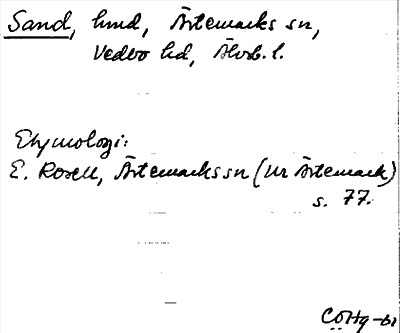 Sand, hmd, Ärtemarks sn,
Vedbo hd, Älvsb. l.
Etymologi:
E. Rosell, Ärtemarks sn (ur Ärtemark)
s. 77.